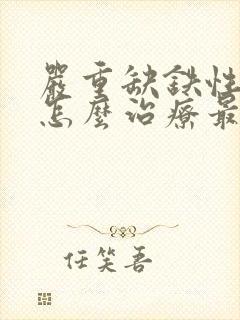 嚴重缺鉄性
怎麽治療最
任笑吾